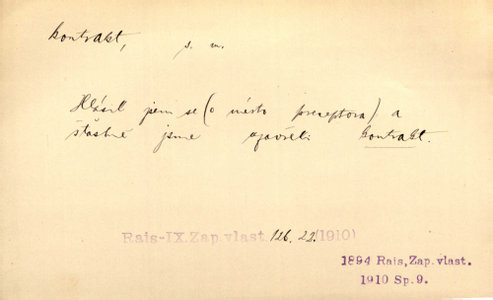 kontrakt, s. m.
Hlásil jsem se (o místo preceptora) a
šťastně jsme uzavřeli kontrakt.
Rais-IX. Zap. vlast. 126. 22. (1910)
1894 Rais, Zap. vlast.
1910 Sp. 9.